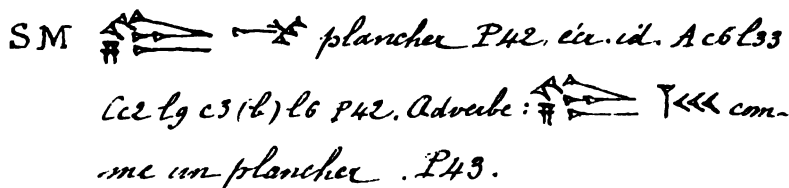 SM plancher P42. écr. id. A c6 l33
Cc2 lg c3 (b) l6 P42. Adverbe : com-
me un plancher . P43.